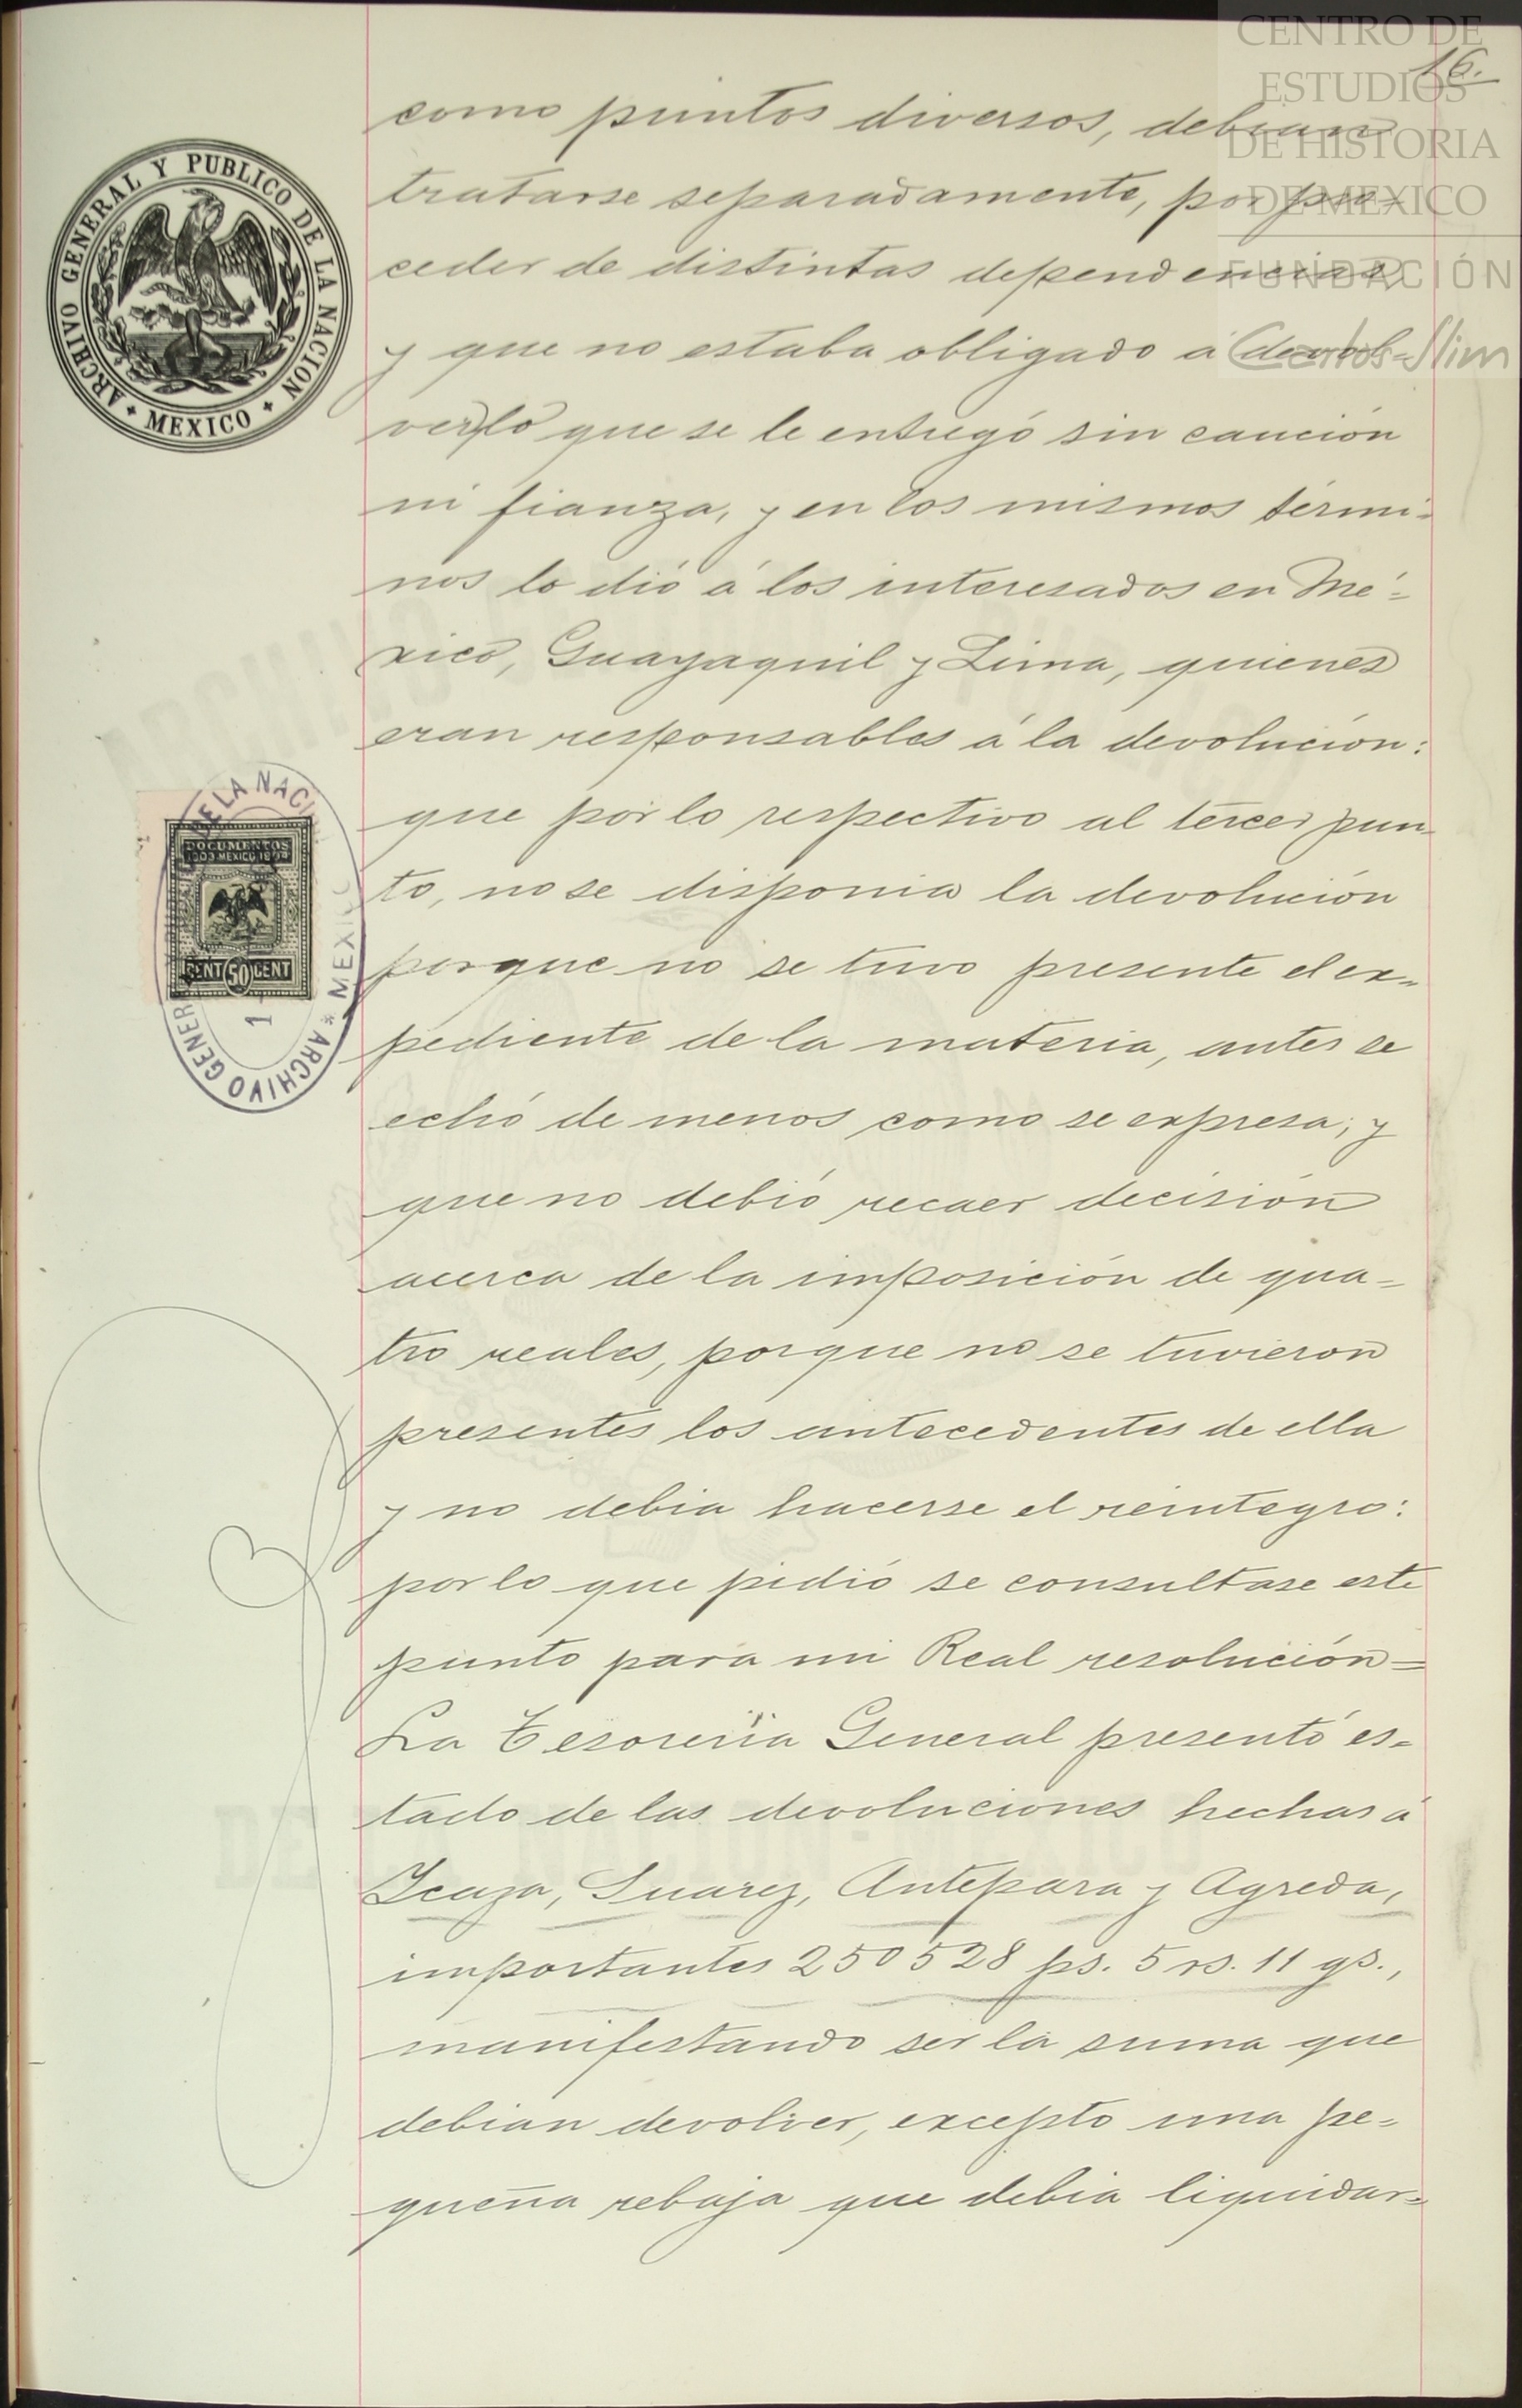 CENTRO DE
ESTUDIOS
DE HISTORIA
DE MEXICO
FUNDACIÓN
Carlos Slim
16.
como puntos diversos, debian
tratarse separadamente, por pro-
ceder de distintas dependencias
y que no estaba obligado á devol-
ver lo que se le entregó sin caución
ni fianza, y en los mismos térmi-
nos lo dió á los interesados en Mé-
xico, Guayaquil y Lima, quienes
eran responsables á la devolución:
que por lo respectivo al tercer pun-
to, no se disponia la devolución
porque no se tuvo presente el ex-
pediente de la materia, antes se
echó de menos como se expresa; y
que no debió recaer decisión
acerca de la imposición de qua-
tro reales, porque no se tuvieron
presentes los antecedentes de ella
y no debia hacerse el reintegro:
por lo que pidió se consultase este
punto para mi Real resolución=
La Tesoreria General presentó es-
tado de las devoluciones hechas á
Icaza, Suarez, Antepara y Agreda,
importantes 250528 ps. 5 rs. 11 gs.,
manifestando ser la suma que
debian devolver, excepto una pe-
queña rebaja que debia liquidar-
ARCHIVO GENERAL Y PUBLICO DE LA NACION
MEXICO
DOCUMENTOS
MEXICO
CENT 50 CENT
ARCHIVO GENER
DE LA NACI
MEXIC